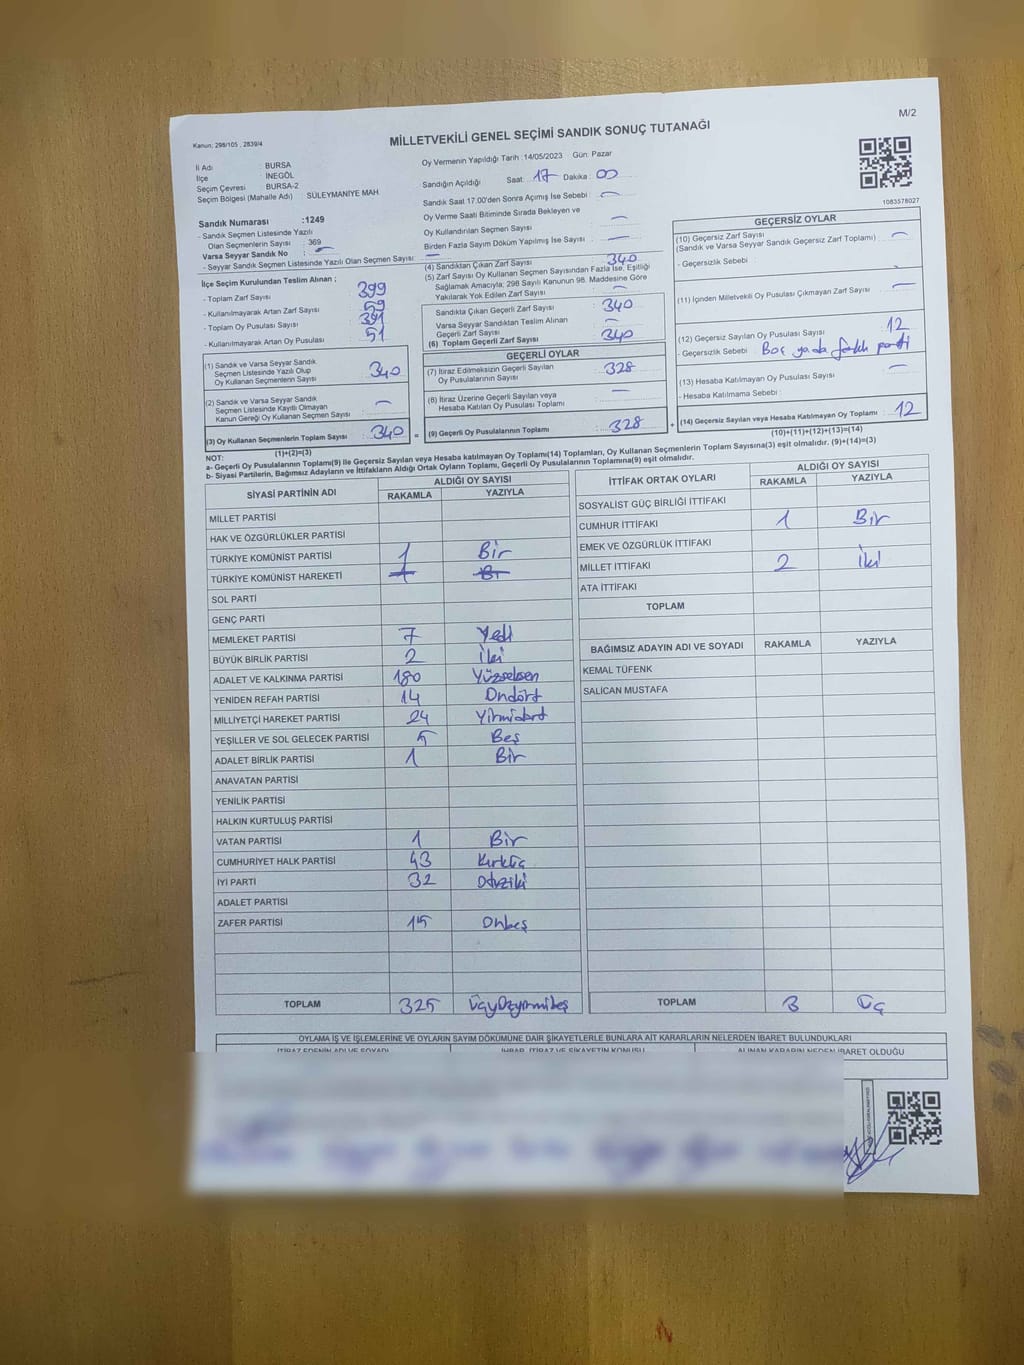 M/2
Kanun; 298/105 , 2839/4
MİLLETVEKİLİ GENEL SEÇİMİ SANDIK SONUÇ TUTANAĞI
İl Adı : BURSA
İlçe İNEGÖL
Seçim Çevresi BURSA-2
Seçim Bölgesi (Mahalle Adı) SÜLEYMANİYE MAH.
Sandık Numarası :1249
- Sandık Seçmen Listesinde Yazılı
Olan Seçmenlerin Sayısı : 369
Varsa Seyyar Sandık No :
- Seyyar Sandık Seçmen Listesinde Yazılı Olan Seçmen Sayısı:
İlçe Seçim Kurulundan Teslim Alınan ;
- Toplam Zarf Sayısı 399
- Kullanılmayarak Artan Zarf Sayısı 59
- Toplam Oy Pusulası Sayısı 391
- Kullanılmayarak Artan Oy Pusulası 51
(1) Sandık ve Varsa Seyyar Sandık
Seçmen Listesinde Yazılı Olup
Oy Kullanan Seçmenlerin Sayısı : 340
(2) Sandık ve Varsa Seyyar Sandık
Seçmen Listesinde Kayıtlı Olmayan
Kanun Gereği Oy Kullanan Seçmen Sayısı : -
(3) Oy Kullanan Seçmenlerin Toplam Sayısı : 340
(1)+(2)=(3)
Oy Vermenin Yapıldığı Tarih :14/05/2023 Gün: Pazar
Sandığın Açıldığı Saat: 17 Dakika : 00
Sandık Saat 17.00'den Sonra Açılmış İse Sebebi : -
Oy Verme Saati Bitiminde Sırada Bekleyen ve
Oy Kullandırılan Seçmen Sayısı : -
Birden Fazla Sayım Döküm Yapılmış İse Sayısı : -
(4) Sandıktan Çıkan Zarf Sayısı : 340
(5) Zarf Sayısı Oy Kullanan Seçmen Sayısından Fazla İse, Eşitliği
Sağlamak Amacıyla; 298 Sayılı Kanunun 98. Maddesine Göre
Yakılarak Yok Edilen Zarf Sayısı : -
Sandıkta Çıkan Geçerli Zarf Sayısı : 340
Varsa Seyyar Sandıktan Teslim Alınan
Geçerli Zarf Sayısı : -
(6) Toplam Geçerli Zarf Sayısı : 340
GEÇERLİ OYLAR
(7) İtiraz Edilmeksizin Geçerli Sayılan
Oy Pusulalarının Sayısı : 328
(8) İtiraz Üzerine Geçerli Sayılan veya
Hesaba Katılan Oy Pusulası Toplamı : -
= (9) Geçerli Oy Pusulalarının Toplamı : 328
1083578027
GEÇERSİZ OYLAR
(10) Geçersiz Zarf Sayısı
(Sandık ve Varsa Seyyar Sandık Geçersiz Zarf Toplamı) : -
- Geçersizlik Sebebi :
(11) İçinden Milletvekili Oy Pusulası Çıkmayan Zarf Sayısı : -
(12) Geçersiz Sayılan Oy Pusulası Sayısı : 12
- Geçersizlik Sebebi : Boş ya da farklı parti
(13) Hesaba Katılmayan Oy Pusulası Sayısı : -
- Hesaba Katılmama Sebebi :
+ (14) Geçersiz Sayılan veya Hesaba Katılmayan Oy Toplamı : 12
(10)+(11)+(12)+(13)=(14)
NOT:
a- Geçerli Oy Pusulalarının Toplamı(9) ile Geçersiz Sayılan veya Hesaba Katılmayan Oy Toplamı(14) Toplamları, Oy Kullanan Seçmenlerin Toplam Sayısına(3) eşit olmalıdır. (9)+(14)=(3)
b- Siyasi Partilerin, Bağımsız Adayların ve İttifakların Aldığı Ortak Oyların Toplamı, Geçerli Oy Pusulalarının Toplamına(9) eşit olmalıdır.
SİYASİ PARTİNİN ADI ALDIĞI OY SAYISI
RAKAMLA YAZIYLA
MİLLET PARTİSİ
HAK VE ÖZGÜRLÜKLER PARTİSİ
TÜRKİYE KOMÜNİST PARTİSİ 1 Bir
TÜRKİYE KOMÜNİST HAREKETİ
SOL PARTİ
GENÇ PARTİ
MEMLEKET PARTİSİ 7 Yedi
BÜYÜK BİRLİK PARTİSİ 2 İki
ADALET VE KALKINMA PARTİSİ 180 Yüzseksen
YENİDEN REFAH PARTİSİ 14 Ondört
MİLLİYETÇİ HAREKET PARTİSİ 24 Yirmidört
YEŞİLLER VE SOL GELECEK PARTİSİ 5 Beş
ADALET BİRLİK PARTİSİ 1 Bir
ANAVATAN PARTİSİ
YENİLİK PARTİSİ
HALKIN KURTULUŞ PARTİSİ
VATAN PARTİSİ 1 Bir
CUMHURİYET HALK PARTİSİ 43 Kırküç
İYİ PARTİ 32 Otuziki
ADALET PARTİSİ
ZAFER PARTİSİ 15 Onbeş
TOPLAM 325 Üçyüzyirmibeş
İTTİFAK ORTAK OYLARI ALDIĞI OY SAYISI
RAKAMLA YAZIYLA
SOSYALİST GÜÇ BİRLİĞİ İTTİFAKI
CUMHUR İTTİFAKI 1 Bir
EMEK VE ÖZGÜRLÜK İTTİFAKI
MİLLET İTTİFAKI 2 İki
ATA İTTİFAKI
TOPLAM
BAĞIMSIZ ADAYIN ADI VE SOYADI RAKAMLA YAZIYLA
KEMAL TÜFENK
SALİCAN MUSTAFA
TOPLAM 3 Üç
OYLAMA İŞ VE İŞLEMLERİNE VE OYLARIN SAYIM DÖKÜMÜNE DAİR ŞİKAYETLERLE BUNLARA AİT KARARLARIN NELERDEN İBARET BULUNDUKLARI
İTİRAZ EDENİN ADI VE SOYADI İHBAR, İTİRAZ VE ŞİKAYETİN KONUSU ALINAN KARARIN NEDEN İBARET OLDUĞU